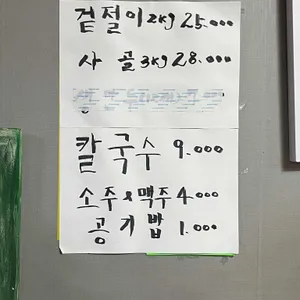 겉절이 2kg 25.000
사골 3kg 28.000
칼국수 9.000
소주 & 맥주 4.000
공기밥 1.000